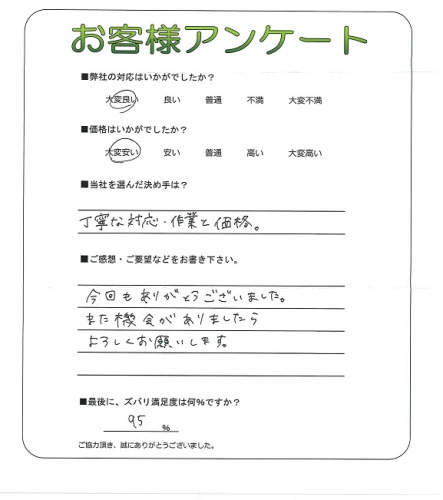 お客様アンケート
■弊社の対応はいかがでしたか?
大変良い 良い 普通 不満 大変不満
■価格はいかがでしたか?
大変安い 安い 普通 高い 大変高い
■当社を選んだ決め手は?
丁寧な対応・作業と価格。
■ご感想・ご要望などをお書き下さい。
今回もありがとうございました。
また機会がありましたら
よろしくお願いします。
■最後に、ズバリ満足度は何%ですか?
95 %
ご協力頂き、誠にありがとうございました。